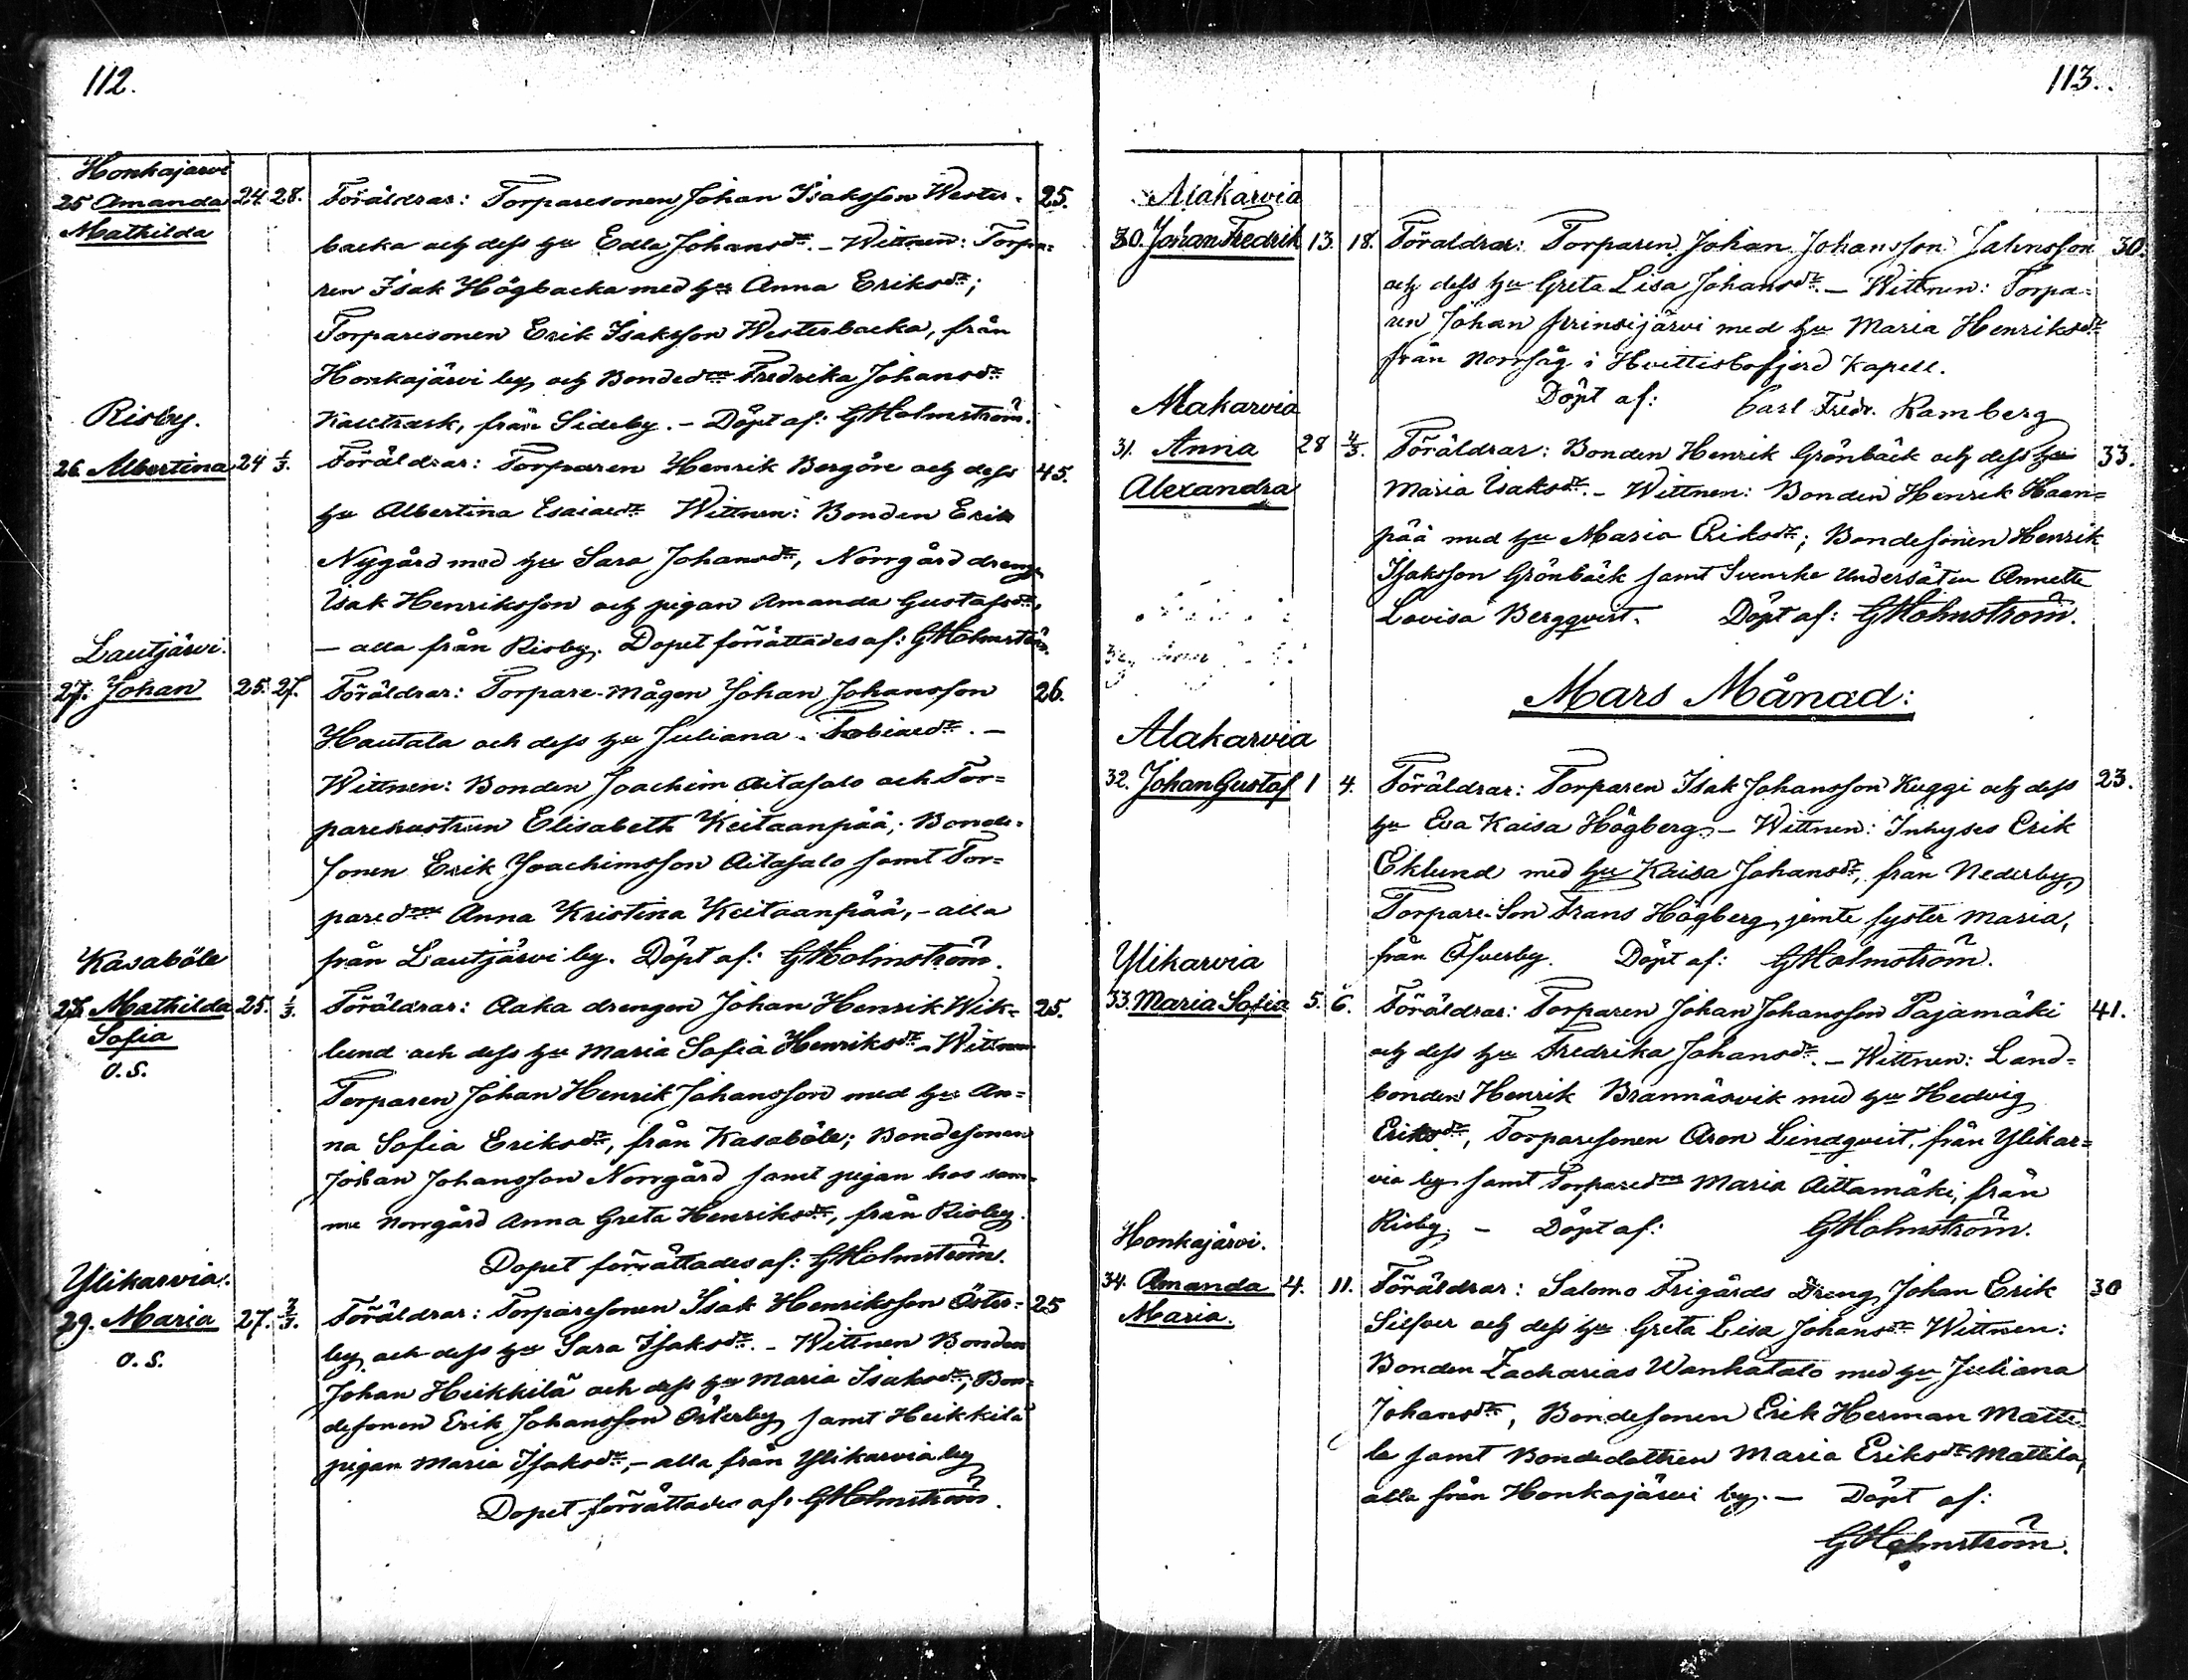 112.
Honkajärvi
25 Amanda 24. 28. Föräldrar: Torparesonen Johan Isaksson Wester- 25.
Mathilda
backa och dess hu Edla Johansdr. – Wittnen: Torpa-
ren Isak Högbacka med hu Anna Eriksdr;
Torparesonen Erik Isaksson Westerbacka, från
Honkajärvi by, och Bonded:n Fredrika Johansdr
Kalltrask, från Sideby. – Döpt af: GHolmström.
Risby.
26. Albertina 24 1/3. Föräldrar: Torparen Henrik Bergåre och dess 45.
hu Albertina Esaiaedr Wittnen: Bonden Erik
Nygård med hu Sara Johansdr, Norrgård dreng
Isak Henriksson och pigan Amanda Gustafsdr,
– alla från Risby. Dopet förrättades af: GHolmström.
Lautjärvi.
27. Johan 25. 27. Föräldrar: Torpare-Mågen Johan Johansson 26.
Hautala och dess hu Juliana Tobiaedr. –
Wittnen: Bonden Joachim Aitasalo och Tor=
parehustrun Elisabeth Keitaanpää; Bonde-
sonen Erik Joachimsson Aitasalo samt Tor=
pared:n Anna Kristina Keitaanpää, – alla
från Lautjärvi by. Döpt af: GHolmström.
Kasaböle
28. Mathilda 25. 1/3. Föräldrar: Aaka drengen Johan Henrik Wik= 25.
Sofia
O.S.
lund och dess hu Maria Sofia Henriksdr – Wittnen
Torparen Johan Henrik Johansson med hu An=
na Sofia Eriksdr, från Kasaböle; Bondesonen
Johan Johansson Norrgård samt pigan hos sam-
me Norrgård Anna Greta Henriksdr, från Risby.
Dopet förrättades af: GHolmström.
Ylikarvia.
29. Maria 27. 2/3. Föräldrar: Torparesonen Isak Henriksson Öster- 25
O.S.
by och dess hu Sara Isaksdr. – Wittnen Bonden
Johan Heikkilä och dess hu Maria Isaksdr; Bon-
desonen Erik Johansson Österby samt Heikkilä
pigan Maria Isaksdr, – alla från Ylikarvia by
Dopet förrättades af: GHolmström.
113.
Alakarvia
30. Johan Fredrik 13. 18. Föräldrar: Torparen Johan Johansson Jahnsson 30.
och dess hu Greta Lisa Johansdr. – Wittnen: Torpa=
ren Johan Prinsijärvi med hu Maria Henriksdr
från Norrsåg i Hvittisbofjerd Kapell.
Döpt af: Carl Fredr. Ramberg
Alakarvia
31. Anna 28 4/3. Föräldrar: Bonden Henrik Grönbäck och dess hu 33.
Alexandra
Maria Isaksdr. – Wittnen: Bonden Henrik Haan=
pää med hu Maria Eriksdr; Bondesonen Henrik
Isaksson Grönbäck samt Svenske Undersåten Annette
Lovisa Bergqvist. Döpt af: GHolmström.
Mars Månad:
Alakarvia
32. Johan Gustaf 1 4. Föräldrar: Torparen Isak Johansson Kuggi och dess 23.
hu Eva Kaisa Högberg, – Wittnen: Inhyses Erik
Eklund med hu Kaisa Johansdr, från Nederby,
Torpare-Son Frans Högberg, jemte syster Maria,
från Öfverby. Döpt af: GHolmström.
Ylikarvia
33. Maria Sofia 5. 6. Föräldrar: Torparen Johan Johansson Pajamäki 41.
och dess hu Fredrika Johansdr. – Wittnen: Land=
bonden Henrik Brännäsvik med hu Hedvig
Eriksdr, Torparesonen Aron Lindqvist, från Ylikar=
via by samt Torpared:n Maria Aittamäki, från
Risby, – Döpt af: GHolmström.
Honkajärvi.
34. Amanda 4. 11. Föräldrar: Salomo Frigårds Dreng Johan Erik 30
Maria.
Silfver och dess hu Greta Lisa Johansdr Wittnen:
Bonden Zacharias Wanhatalo med hu Juliana
Johansdr, Bondesonen Erik Herman Matti-
la samt Bondedottren Maria Eriksdr Mattila,
alla från Honkajärvi by. – Döpt af:
GHolmström.